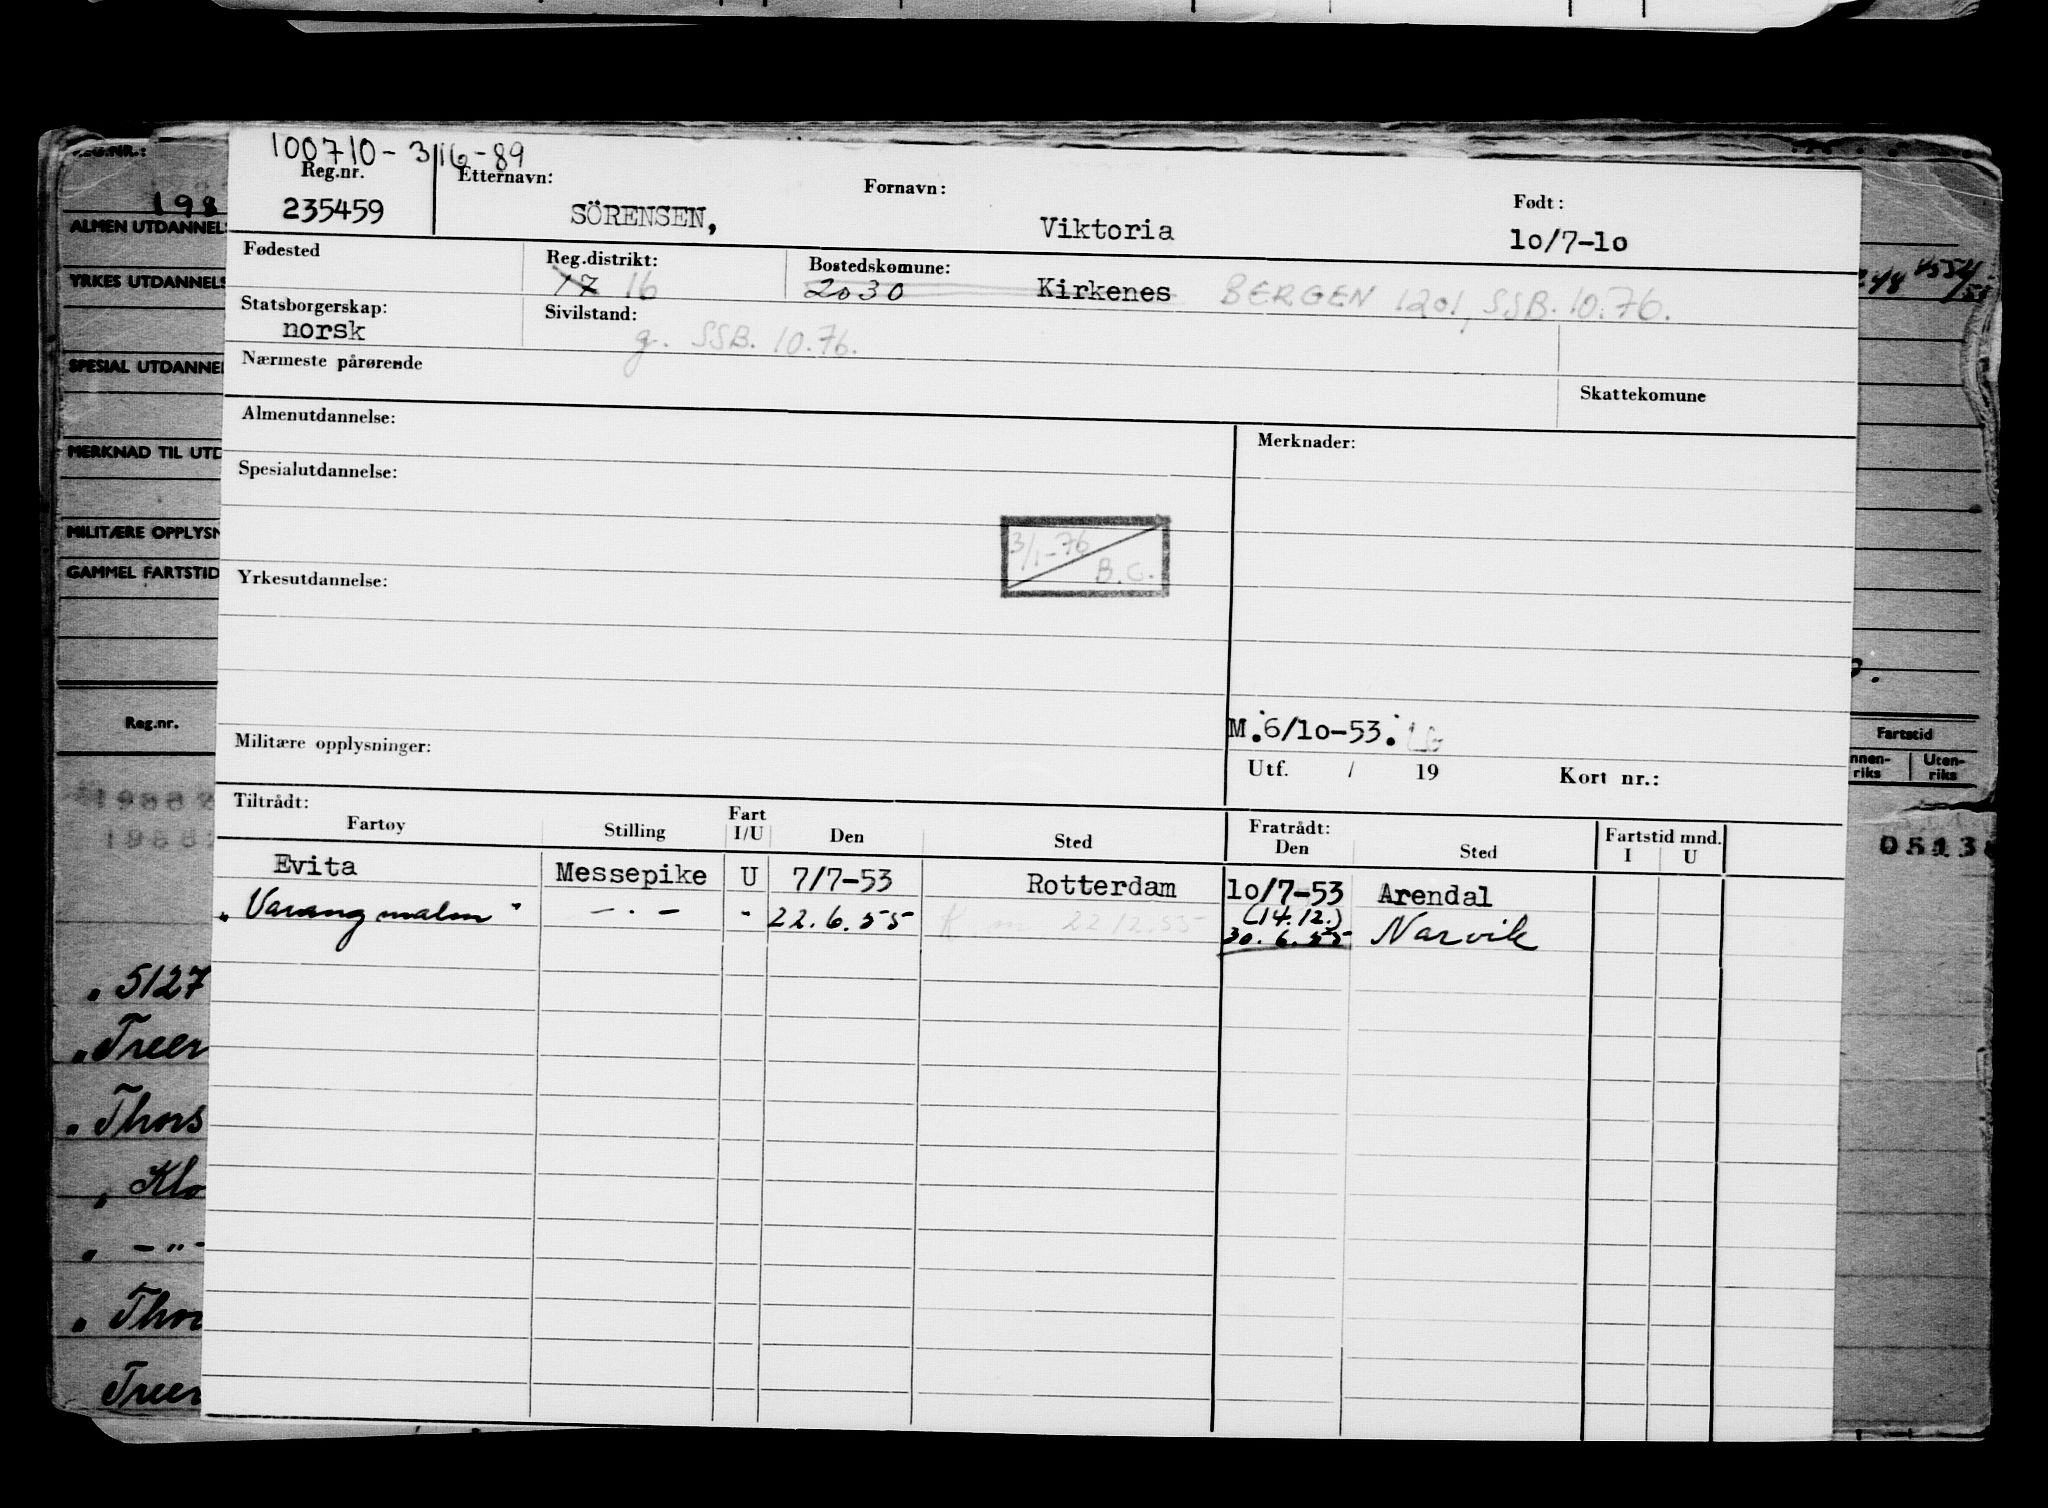 100710-3116-89
Reg.nr. Etternavn: Fornavn: Født:
235459 SÖRENSEN, Viktoria 10/7-10
Fødested Reg.distrikt: Bostedskomune:
17 16 2030 Kirkenes BERGEN 1201, SSB. 10.76.
Statsborgerskap: Sivilstand:
norsk g. SSB. 10.76.
Nærmeste pårørende Skattekomune
Almenutdannelse: Merknader:
Spesialutdannelse:
3/1-76
B.C.
Yrkesutdannelse:
M.6/10-53.
Militære opplysninger:
Utf. / 19 Kort nr.:
Tiltrådt: Fratrådt: Fartstid mnd.
Fartøy Stilling Fart I/U Den Sted Den Sted I U
Evita Messepike U 7/7-53 Rotterdam 10/7-53 Arendal
"Varangmalm" - . - - 22.6.55 22.12.55 (14.12.) 30.6.55 Narvik
REG.NR.:
198
ALMEN UTDANNELS
YRKES UTDANNELS
SPESIAL UTDANNEL
MERKNAD TIL UTD
MILITÆRE OPPLYSN
GAMMEL FARTSTID
Reg.nr.
" 5127
" Treer
" Thors
" Klo
" - " -
" Thor
Treer
Fartstid
nnen-
riks
Uten-
riks